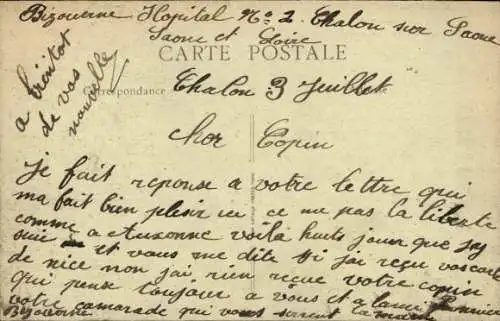 Bizouerne Hopital No 2 Chalon sur Saone
Saone et Loire
CARTE POSTALE
a bientot
de vos
nouvelle
Correspondance
Chalon 3 Juillet
cher Copin
Je fait reponse a votre lettre qui
ma fait bien plesir ici ce ne pas la liberte
comme a Auxonne voila huits jour que jey
suis et vous me dite si jai reçu vos carte
de nice non jai rien reçue votre copin
qui pense toujour a vous et a
votre camarade qui vous serrent la main
Bizouerne